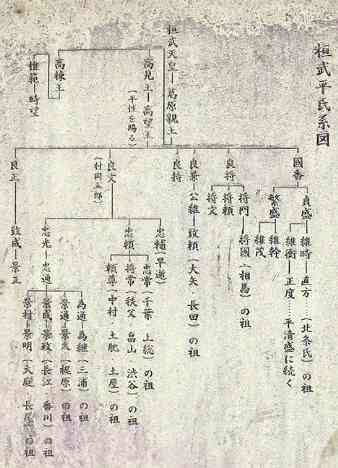 桓武平氏系図
桓武天皇―葛原親王
高見王―高望王
(平性を賜る)
高棟王
惟範―時望
國香
貞盛
維時―直方(北条氏)の祖
維衡―正度……平清盛に続く
繁盛
維幹
維茂
良将
将門
将國(相馬)の祖
将頼
将文
良兼―公雅―致頼(大矢・長田)の祖
良持
良文
(村岡五郎)
忠輔(早逝)
忠頼
忠常(千葉 上総)の祖
将常(秩父 畠山 渋谷)の祖
頼尊(中村 土肥 土屋)の祖
忠光―忠通
為通―為継(三浦)の祖
景通―景久(梶原)の祖
景成―景政(長江 香川)の祖
景村―景明(大庭 長尾)の祖
良正―致成―景正